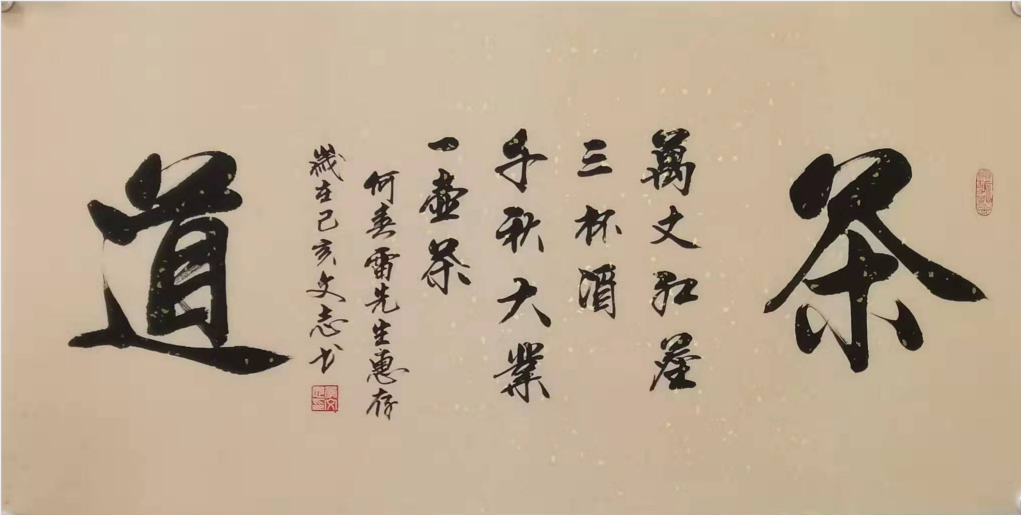 茶
萬丈紅塵
三杯酒
千秋大業
一壺茶
何春雷先生惠存
歲在己亥文志书
道